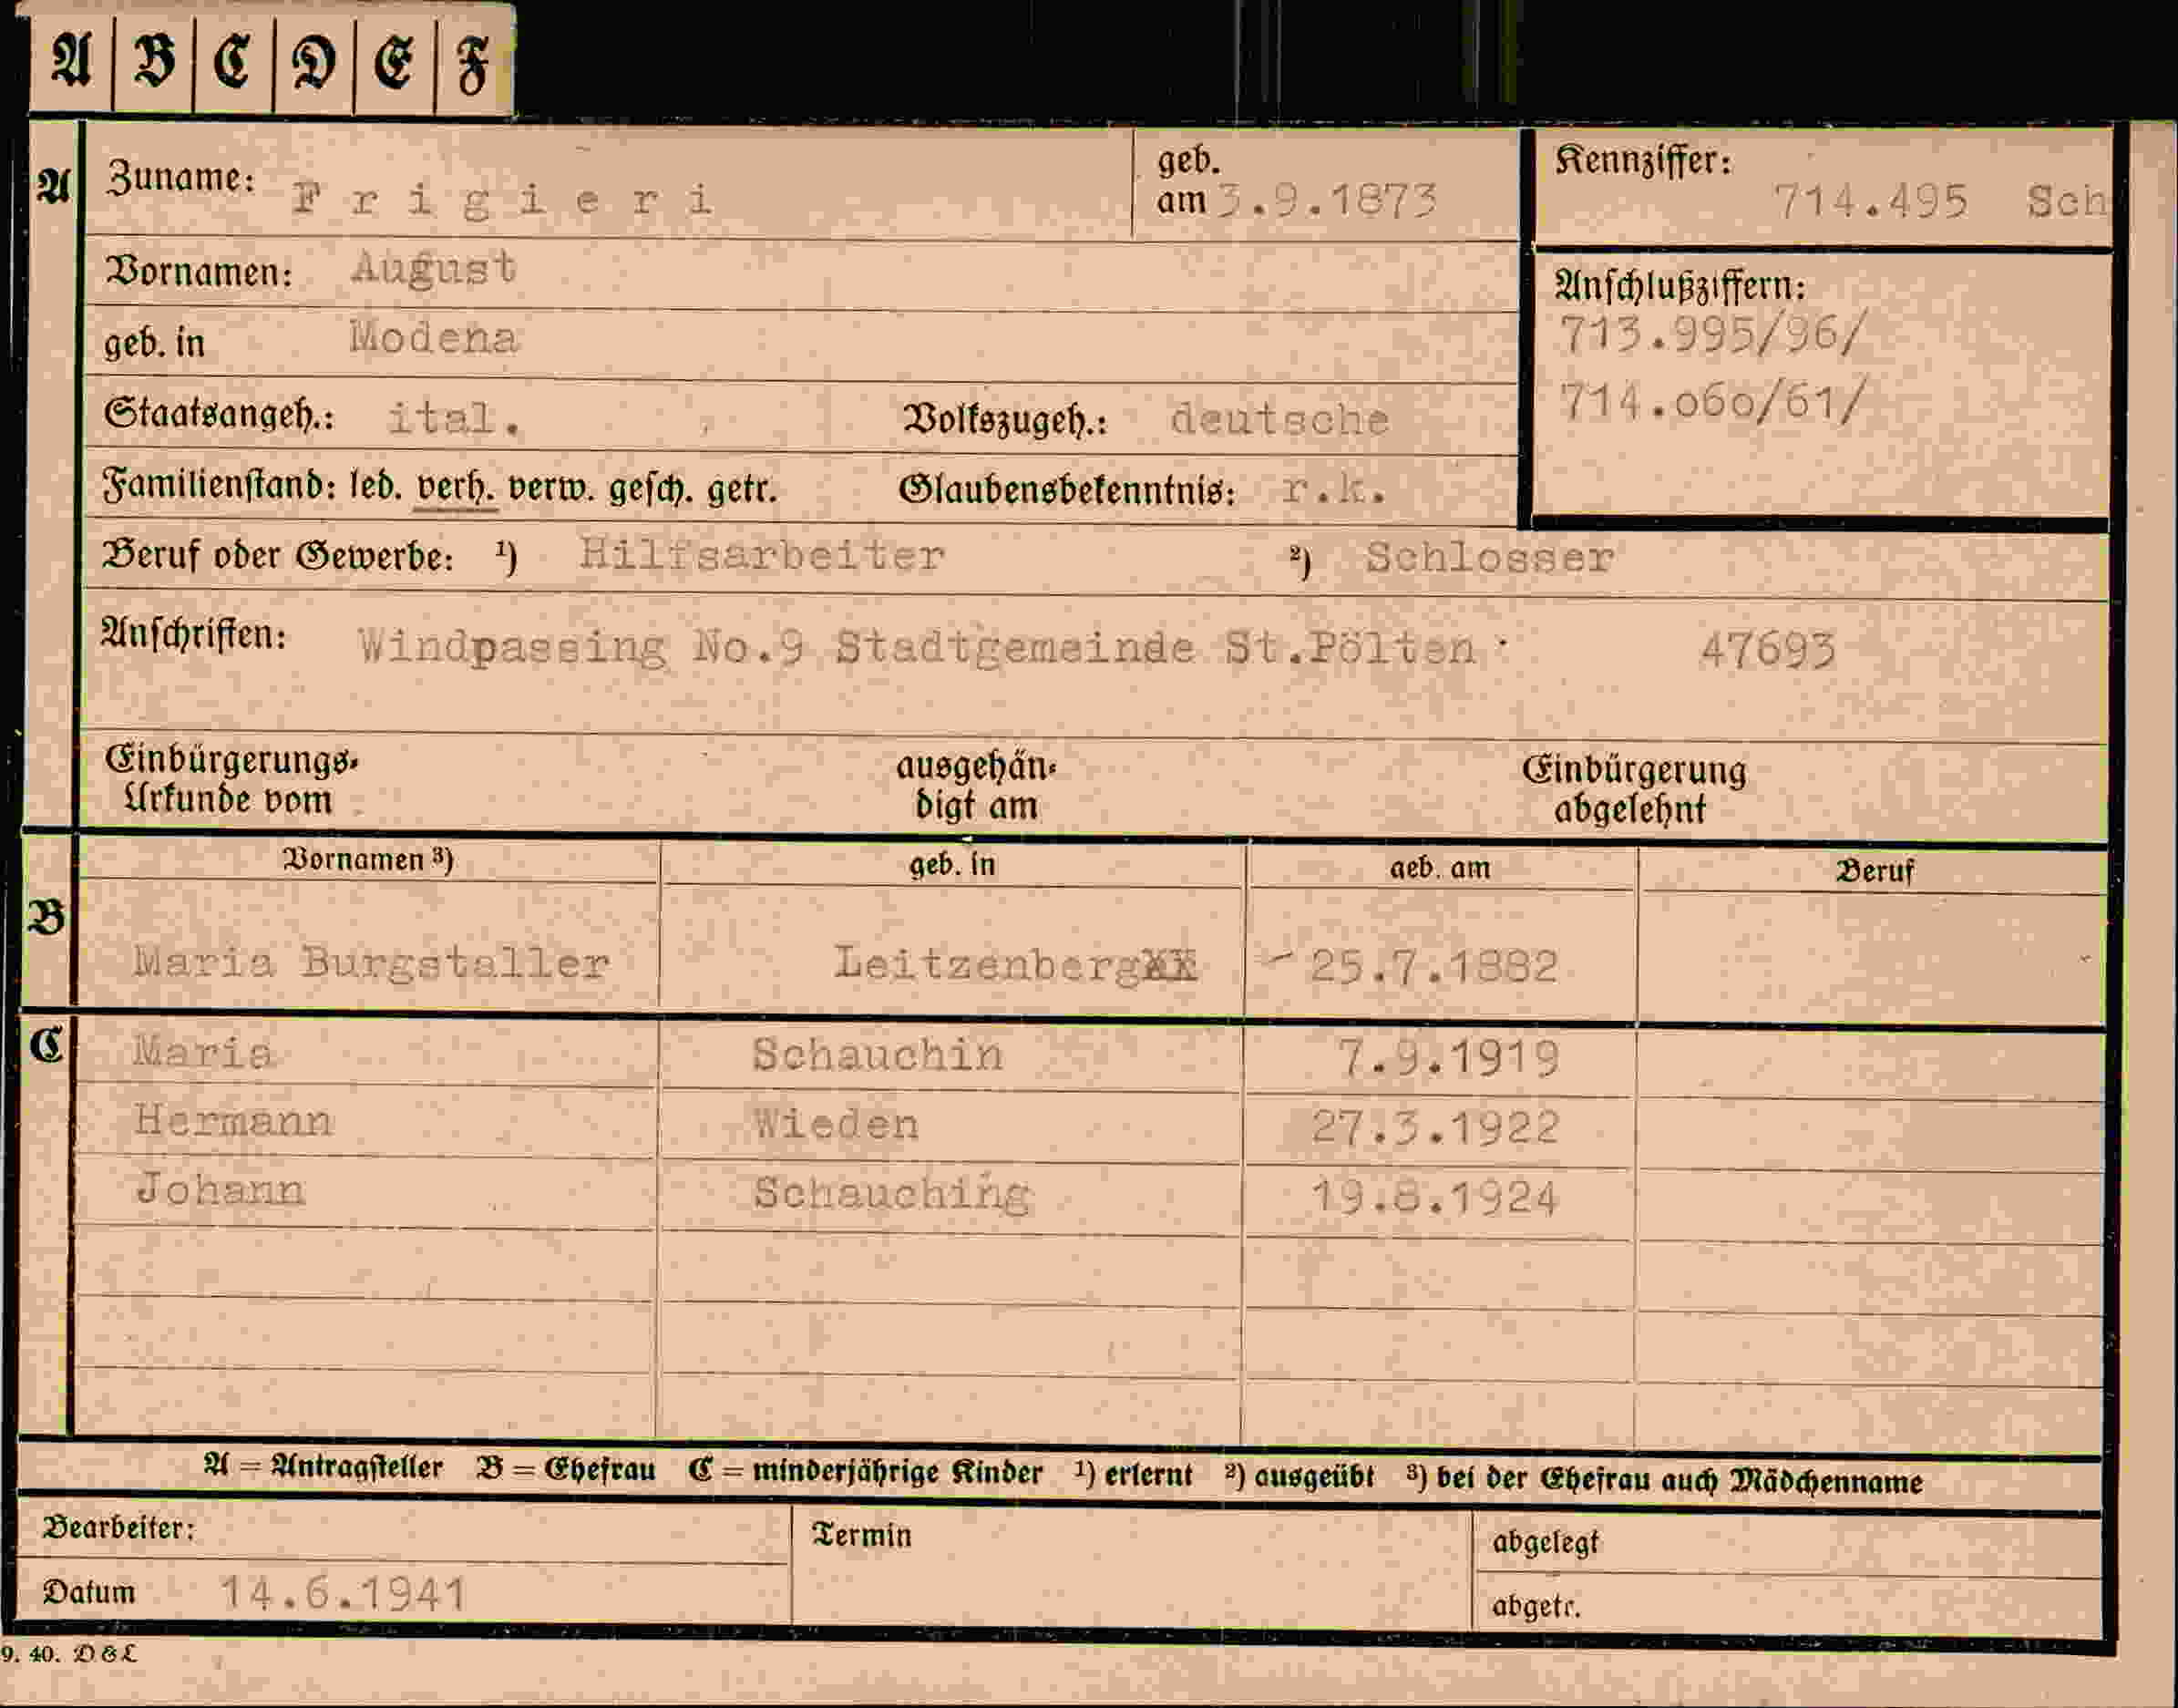 A B C D E F
A Zuname: Frigieri geb. am 3.9.1873 Kennziffer: 714.495 Sch
Vornamen: August Anschlußziffern:
geb. in Modena 713.995/96/
Staatsangeh.: ital. Volkszugeh.: deutsche 714.060/61/
Familienstand: led. verh. verw. gesch. getr. Glaubensbekenntnis: r.k.
Beruf oder Gewerbe: ¹) Hilfsarbeiter ²) Schlosser
Anschriften: Windpassing No.9 Stadtgemeinde St.Pölten 47693
Einbürgerungs- ausgehän- Einbürgerung
Urkunde vom digt am abgelehnt
Vornamen ³) geb. in geb. am Beruf
B
Maria Burgstaller Leitzenberg 25.7.1882
C Maria Schauchin 7.9.1919
Hermann Wieden 27.3.1922
Johann Schauching 19.8.1924
A = Antragsteller B = Ehefrau C = minderjährige Kinder ¹) erlernt ²) ausgeübt ³) bei der Ehefrau auch Mädchenname
Bearbeiter: Termin abgelegt
Datum 14.6.1941 abgetr.
9. 40. D & L